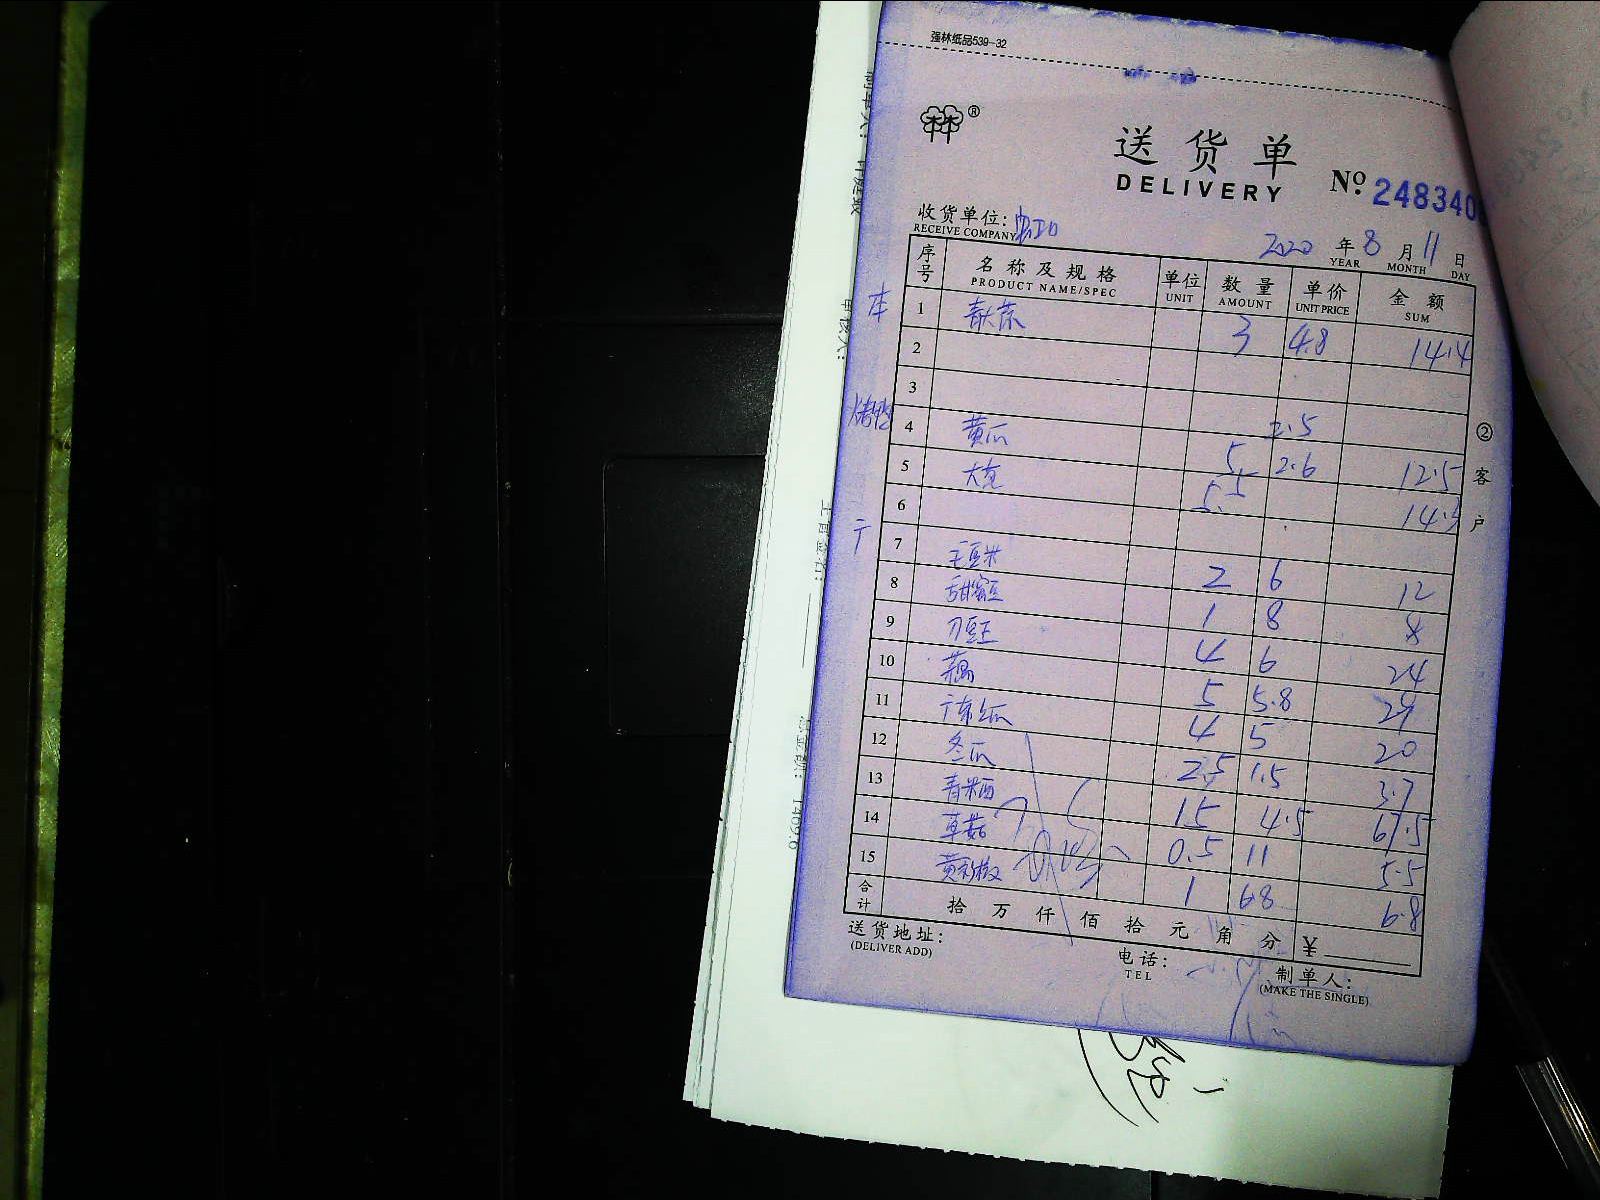 强林纸品539-32
®
送货单
DELIVERY
No. 248340
收货单位:
RECEIVE COMPANY
2020 年 8 月 11 日
YEAR MONTH DAY
序号 名称及规格 单位 数量 单价 金额
PRODUCT NAME/SPEC UNIT AMOUNT UNIT PRICE SUM
本
1 3 4.8 14.4
2
3
烤鸭
4 黄瓜 5 2.5 12.5
5 大葱 5.5 2.6 14.3
6
7 毛豆米 2 6 12
8 甜蜜豆 1 8 8
9 刀豆 4 6 24
10 藕 5 5.8 29
11 4 5 20
12 冬瓜 2.5 1.5 3.7
13 青米西 15 4.5 67.5
14 草菇 0.5 11 5.5
15 1 6.8 6.8
合计 拾 万 仟 佰 拾 元 角 分 ¥
送货地址:
(DELIVER ADD)
电话:
TEL
制单人:
(MAKE THE SINGLE)
② 客户